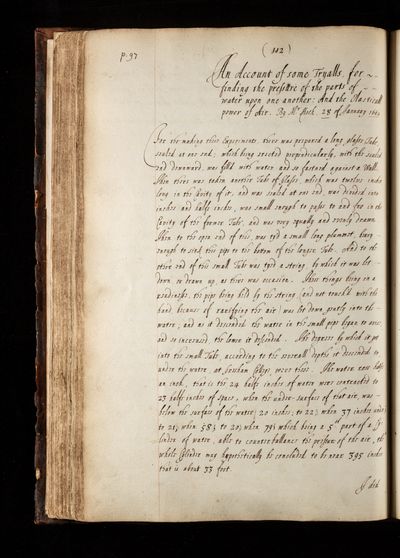 p. 97
(112)
An Account of some Tryalls, for
finding the pressure of the parts of
water upon one another: And the Elasticall
power of Air. By Mr Hook. 28 of January
For the making these Experiments, there was prepared a long glasse Tube
sealed at one end, which being erected perpendicularly, with the sealed
end downward, was fill'd with water and so fastned against a Wall.
Then there was taken another Tube of Glasse, which was twelve inches
long in the Cavity of it, and was sealed at one end, was divided into
inches and halfe inches, was small enough to passe to and fro in the
Cavity of the former Tube, and was very equally and evenly drawn.
Then to the open end of this was tyd a small long plummet, heavy
enough to sink this pipe to the bottom of the longer Tube. And to the
other end of this small Tube was tyed a string by which it was let
down or drawn up, as there was occasion. These things being in a
readinesse, the pipe being held by the string (and not touch'd with the
hand because of rarefying the air) was let down gently into the
water, and as it descended the water in the small pipe began to
and so increased the lower it descended. The degrees by which it
into the small Tube, according to the severall depths it descended to
under the water, at Gresham College, were these. The water rose halfe
an inch, that is the 24 halfe inches of water were contracted to
23 halfe inches of space, when the under-surface of that air, was
below the surface of the water 20 inches; to 22, when 37 inches under
to 21, when 58½ to 20, when 79½ which being a 5th part of a Cy-
linder of water, able to counterballance the pressure of the air, the
whole Cylinder may hypothetically be concluded to be near 395 inches
that is about 33 foot.
I did